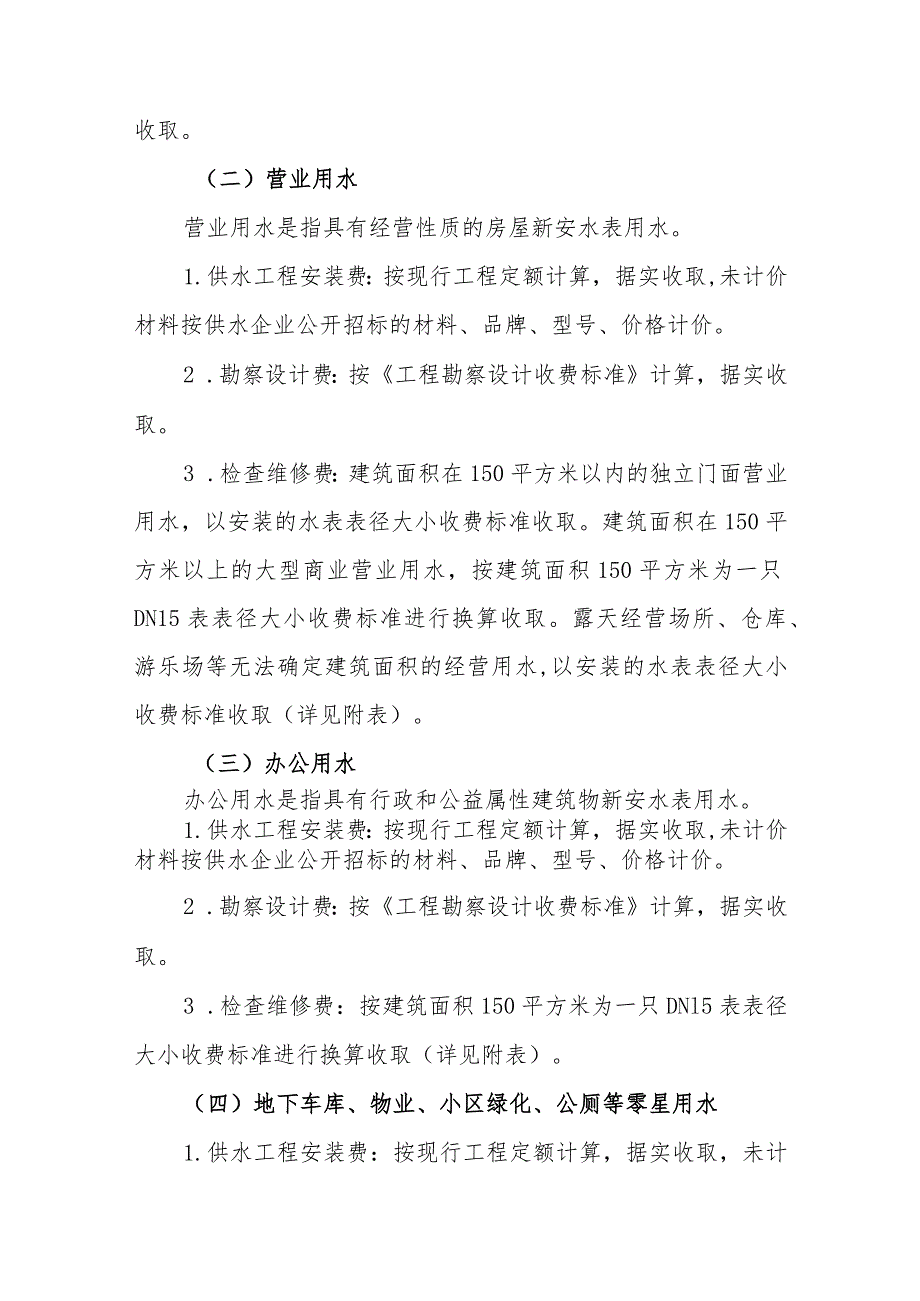 收取。
（二）营业用水
营业用水是指具有经营性质的房屋新安水表用水。
1.供水工程安装费：按现行工程定额计算，据实收取,未计价
材料按供水企业公开招标的材料、品牌、型号、价格计价。
2 .勘察设计费：按《工程勘察设计收费标准》计算，据实收
取。
3 .检查维修费：建筑面积在 150 平方米以内的独立门面营业
用水，以安装的水表表径大小收费标准收取。建筑面积在 150 平
方米以上的大型商业营业用水，按建筑面积 150 平方米为一只
DN15 表表径大小收费标准进行换算收取。露天经营场所、仓库、
游乐场等无法确定建筑面积的经营用水,以安装的水表表径大小
收费标准收取（详见附表）。
（三）办公用水
办公用水是指具有行政和公益属性建筑物新安水表用水。
1.供水工程安装费：按现行工程定额计算，据实收取,未计价
材料按供水企业公开招标的材料、品牌、型号、价格计价。
2 .勘察设计费：按《工程勘察设计收费标准》计算，据实收
取。
3 .检查维修费：按建筑面积 150 平方米为一只 DN15 表表径
大小收费标准进行换算收取（详见附表）。
（四）地下车库、物业、小区绿化、公厕等零星用水
1.供水工程安装费：按现行工程定额计算，据实收取，未计